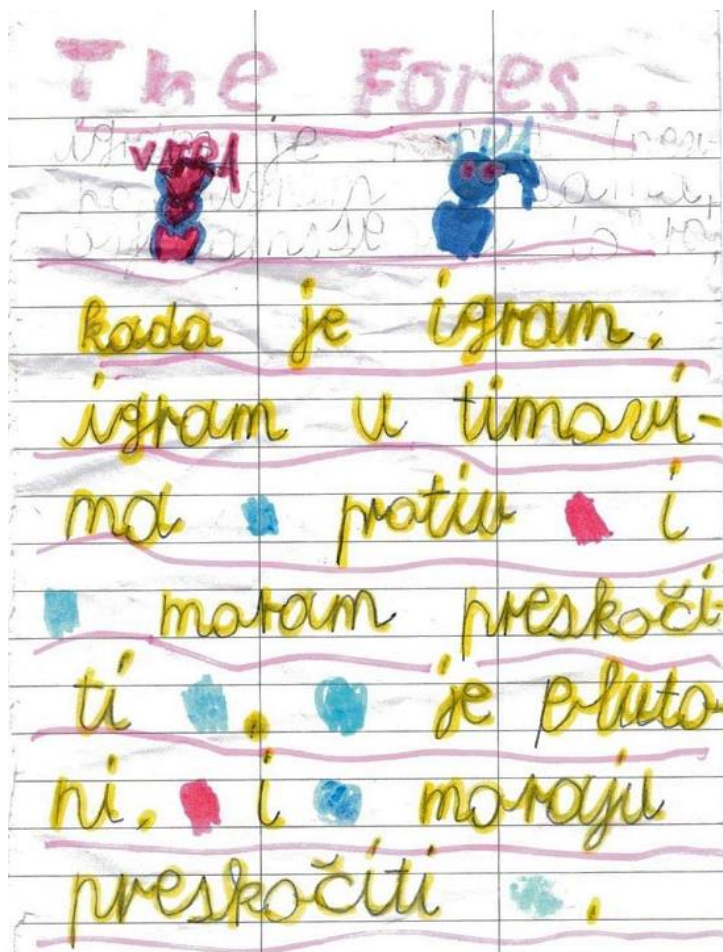 The Fores...
kada je igram.
igram u timovi-
ma protiv i
moram preskoči
ti . je pluto
ni. i moraju
preskočiti .